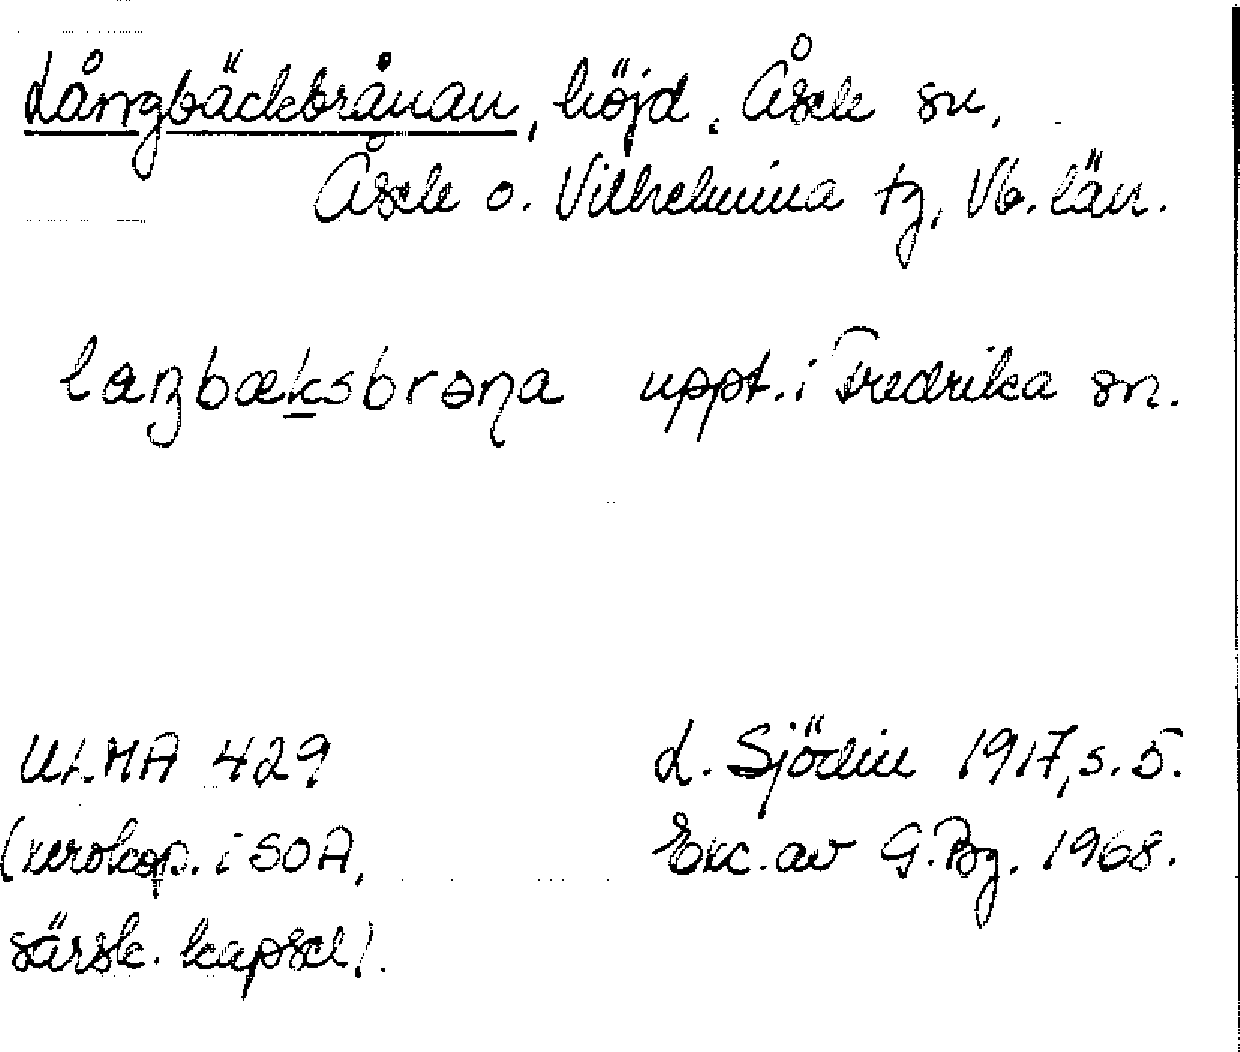 Långbäckbrånan, höjd, Åsele sn,
Åsele o. Vilhelmina tg, Vb. län.
laŋbæksbrəna uppt. i Fredrika sn.
ULMA 429 L. Sjödin 1917, s. 5.
(xerokop. i SOA, Exc. av G. Bg. 1968.
särsk. kapsel).